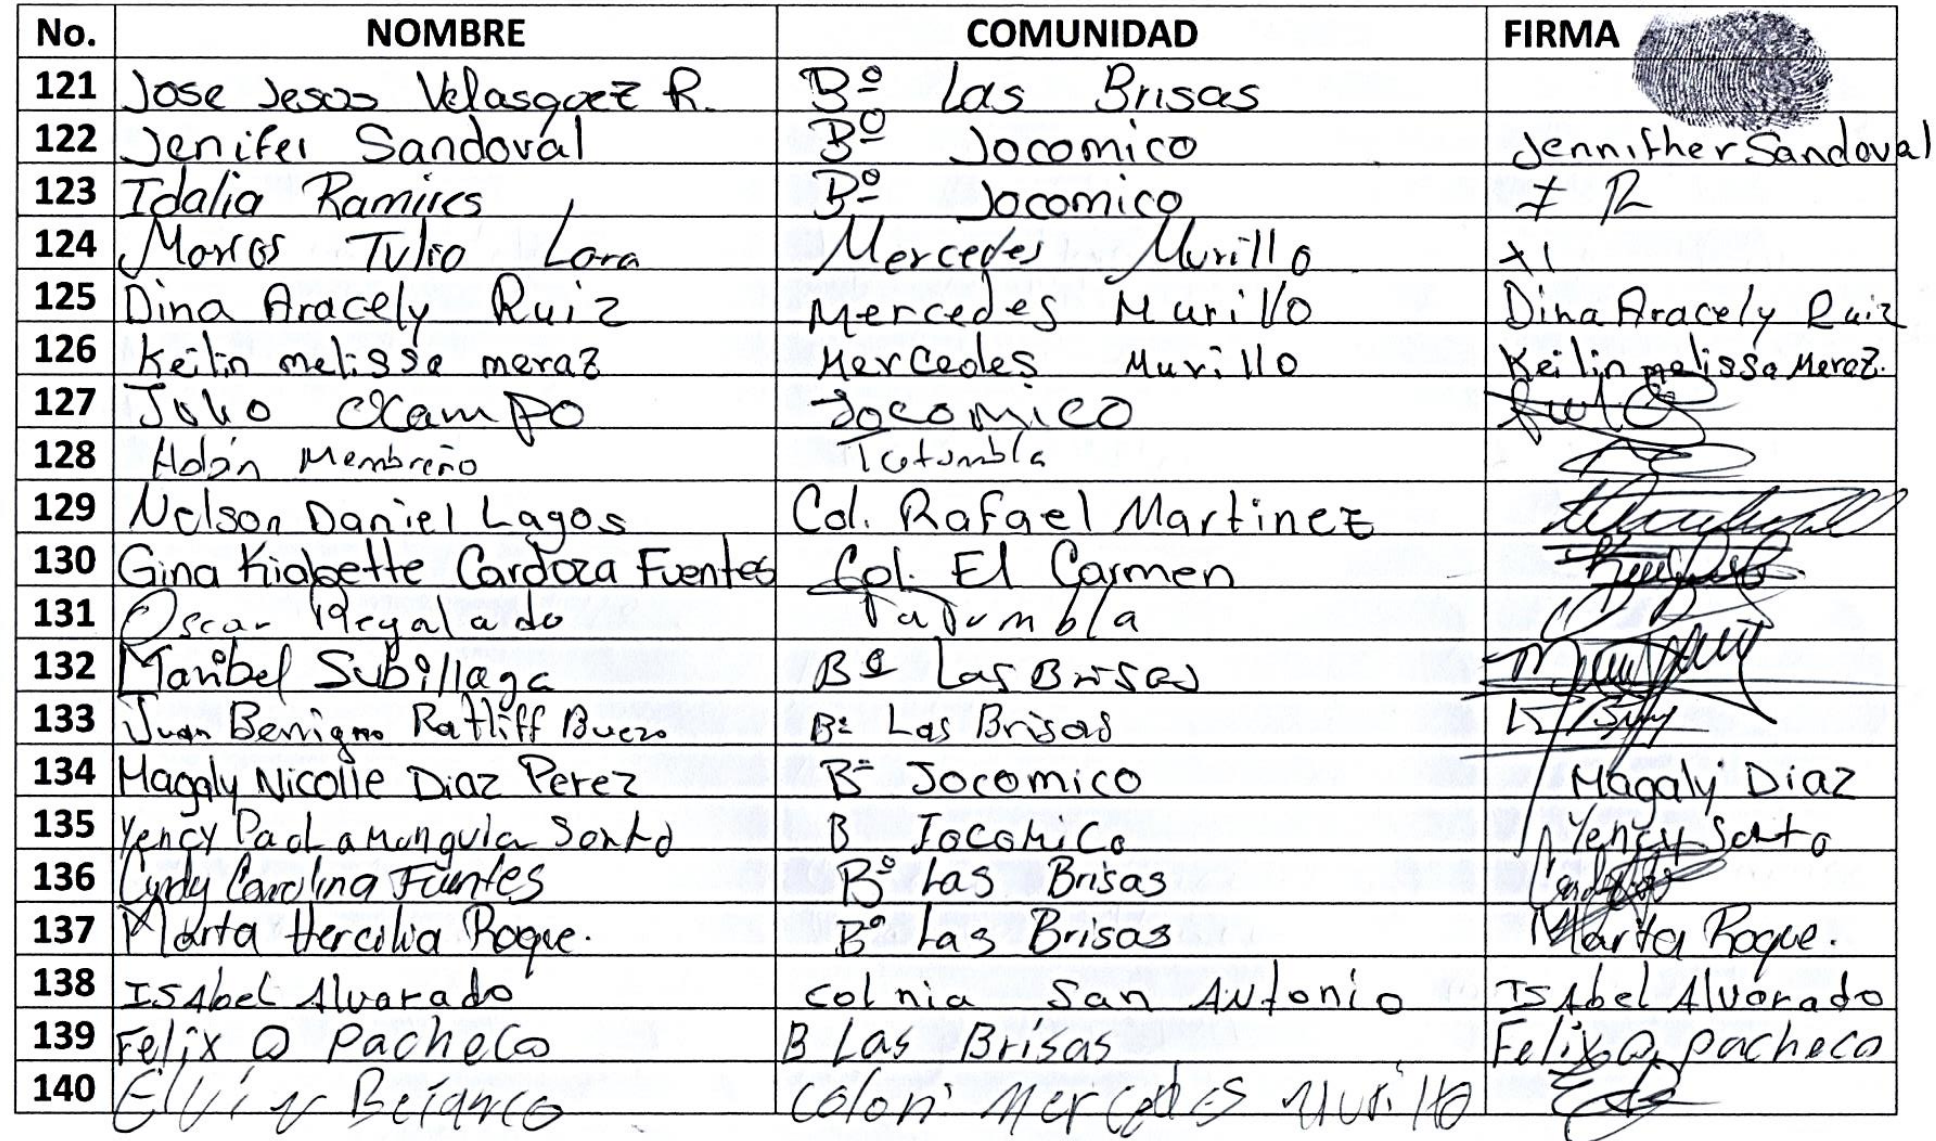 No. NOMBRE COMUNIDAD FIRMA
121 Jose Jesus Velasquez R. Bº Las Brisas
122 Jenifer Sandoval Bº Jocomico Jennifher Sandoval
123 Idalia Ramires Bº Jocomico I R
124 Marcos Tulio Lara Mercedes Murillo
125 Dina Aracely Ruiz Mercedes Murillo Dina Aracely Ruiz
126 Keilin melissa meraz Mercedes Murillo Keilin melissa Meraz.
127 Julio Ocampo Jocomico
128 Adán Membreño Tatumbla
129 Nelson Daniel Lagos Col. Rafael Martinez
130 Gina Cardoza Fuentes Col. El Carmen
131 Oscar Regalado Tatumbla
132 Maribel Subillaga Bº Las Brisas
133 Juan Benigno Ratliff Bueso Bº Las Brisas
134 Magaly Nicolle Diaz Perez Bº Jocomico Magaly Diaz
135 Yency Paola Munguia B Jocomico Yency
136 Cindy Carolina Fuentes Bº Las Brisas
137 Marta Hercilia Roque. Bº Las Brisas Marta Roque.
138 ISAbel Alvarado colnia San Antonio ISAbel Alvarado
139 Felix Q Pacheco B Las Brisas Felix Q pacheco
140 Elvin Betanco Coloni Mercedes Murillo